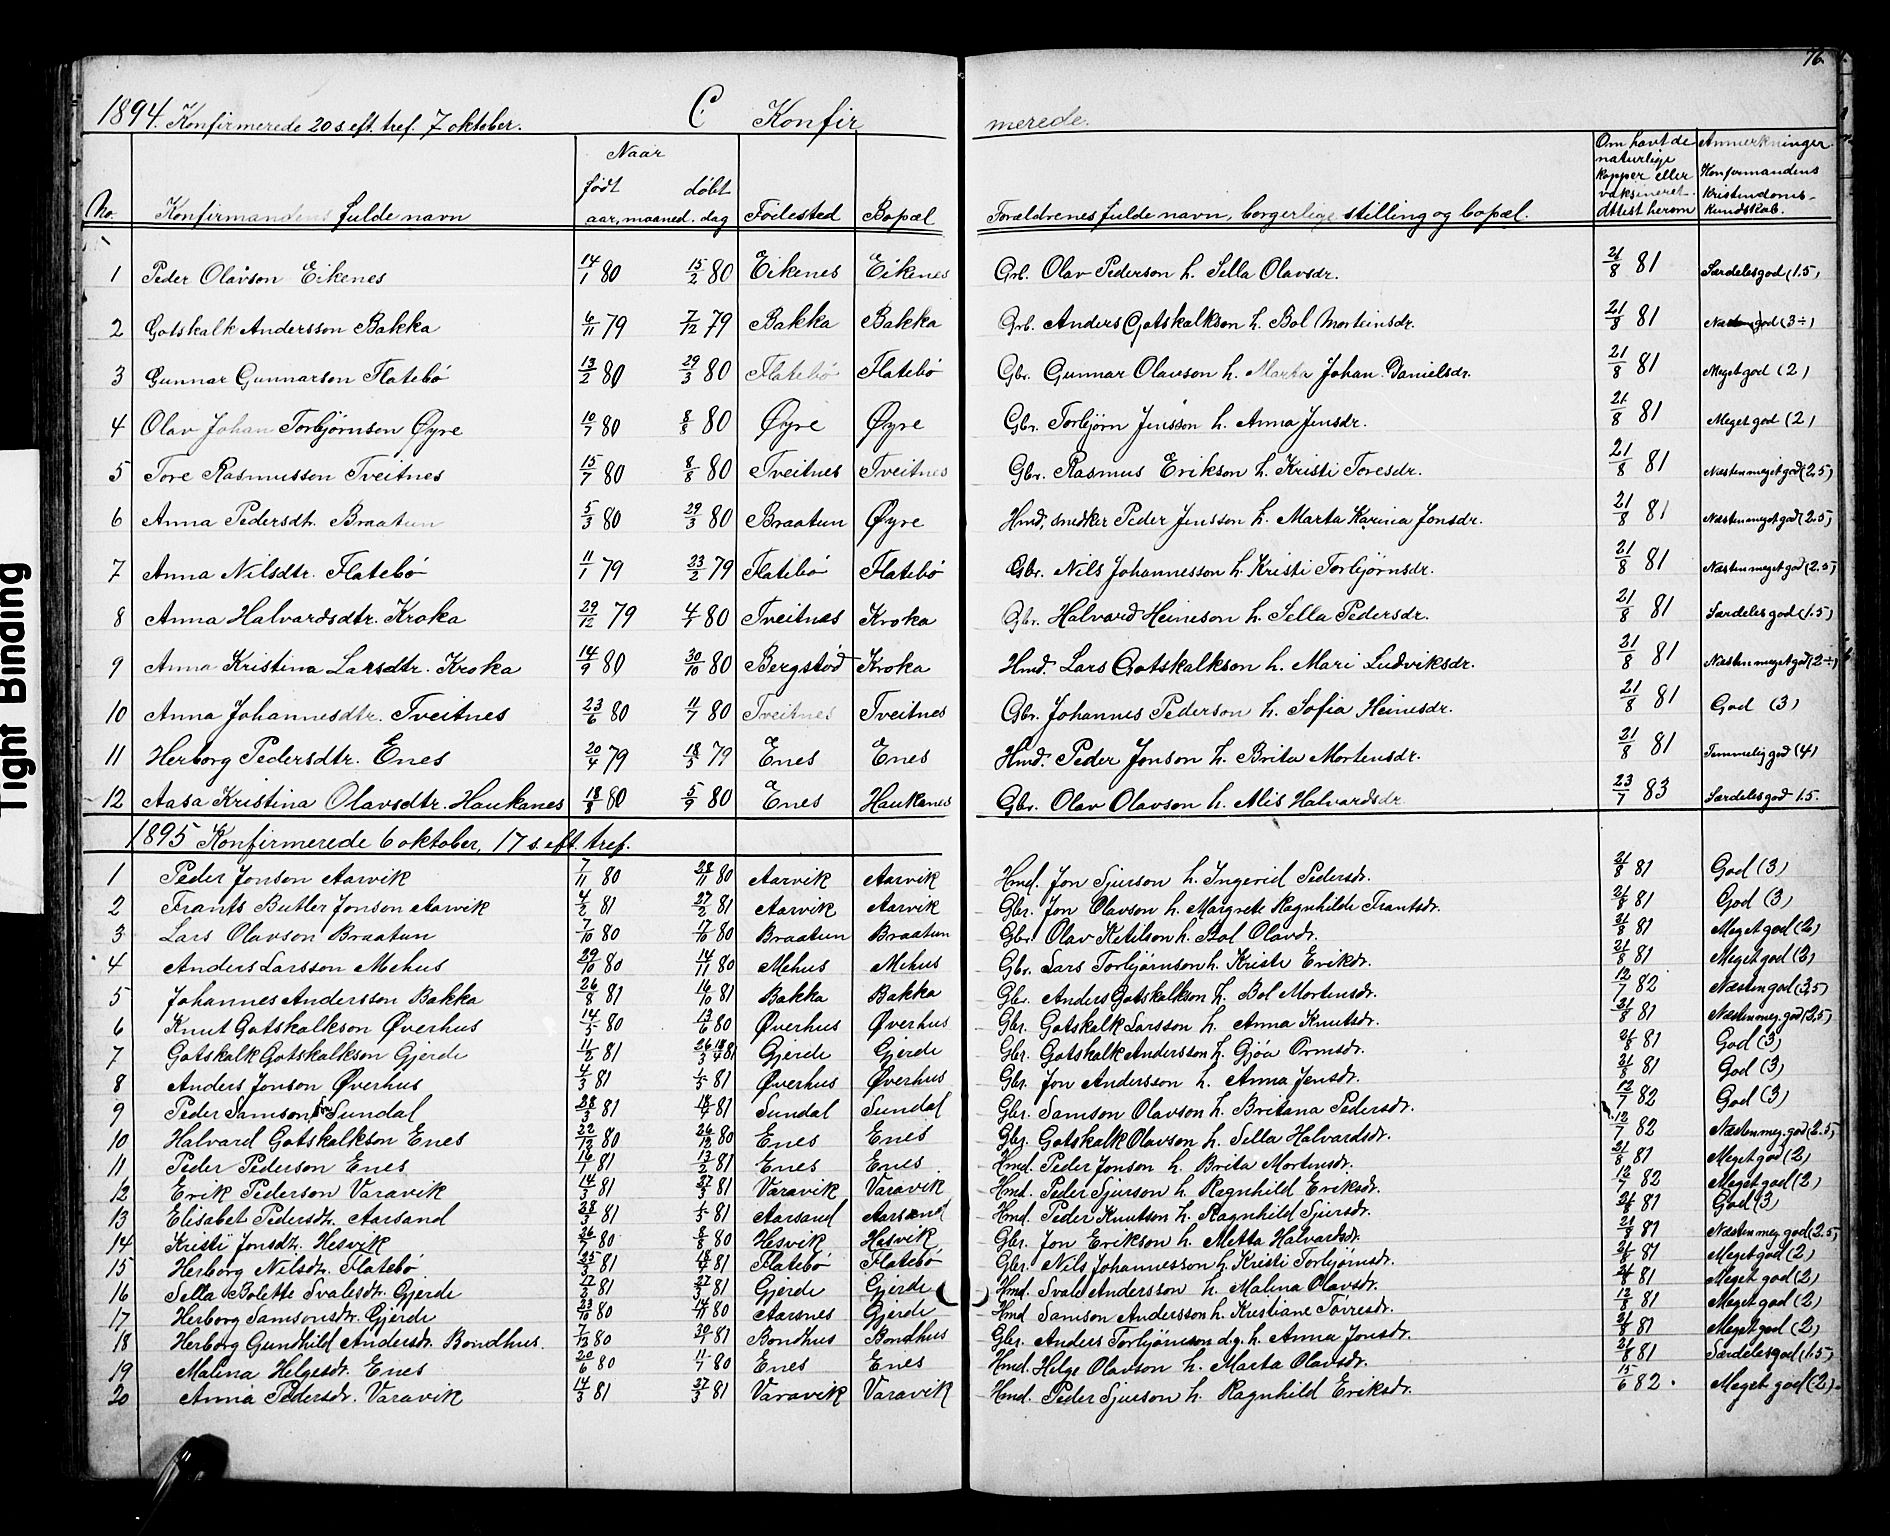 76.
1894. Konfirmerede 20 s. eft. tref. 7 oktober. C Konfirmerede.
No. Konfirmandens fulde navn Naar født døbt aar, maaned. dag Fødested Bopæl Forældrenes fulde navn, borgerlige stilling og bopæl. Om havt de naturlige kopper eller vaksineret attest herom Anmerkninger Konfirmandens kristendoms-kundskab.
1 Peder Olavson Eikenes 14/1 80 15/2 80 Eikenes Eikenes Grb. Olav Pederson h. Sella Olavsdr. 21/8 81 Særdeles god (1.5)
2 Gotskalk Andersson Bakka 6/11 79 7/12 79 Bakka Bakka Grb. Anders Gotskalkson h. Bol Morteinsdr. 21/8 81 god (3÷)
3 Gunnar Gunnarson Flatebø 13/2 80 29/3 80 Flatebø Flatebø Gbr. Gunnar Olavson h. Marta Johan. Danielsdr. 21/8 81 Meget god (2)
4 Olav Johan Torbjørnson Øyre 10/7 80 8/8 80 Øyre Øyre Gbr. Torbjørn Jensson h. Anna Jensdr. 21/8 81 Meget god (2)
5 Tore Rasmusson Tveitnes 15/7 80 8/8 80 Tveitnes Tveitnes Gbr. Rasmus Erikson h. Kristi Toresdr. 21/8 81 Næsten meget god (2.5)
6 Anna Pedersdt. Braatun 5/3 80 29/3 80 Braatun Øyre Hmd, snedker Peder Jensson h. Marta Karina Jonsdr. 21/8 81 Næsten meget god (2.5)
7 Anna Nilsdtr. Flatebø 11/1 79 23/2 79 Flatebø Flatebø Gbr. Nils Johannesson h. Kristi Torbjørnsdr. 21/8 81 Næsten meget god (2.5)
8 Anna Halvardsdtr. Kroka 29/12 79 4/7 80 Tveitnes Kroka Gbr. Halvard Heineson h. Sella Pedersdr. 21/8 81 Særdeles god (1.5)
9 Anna Kristina Larsdtr. Kroka 14/9 80 30/10 80 Bergstød Kroka Hmd. Lars Gotskalkson h. Mari Ludviksdr. 21/8 81 Næsten meget god (2÷)
10 Anna Johannesdtr. Tveitnes 23/6 80 11/7 80 Tveitnes Tveitnes Gbr. Johannes Pederson h. Sofia Heinesdr. 21/8 81 God (3)
11 Herborg Pedersdtr. Enes 20/4 79 18/5 79 Enes Enes Hmd. Peder Jonson h. Brita Mortensdr. 21/8 81 Temmelig god (4)
12 Aasa Kristina Olavsdtr. Haukanes 18/8 80 5/9 80 Enes Haukanes Gbr. Olav Olavson h. Alis Halvardsdr 23/7 83 Særdeles god 1.5.
1895 Konfirmerede 6 oktober, 17 s. eft. tref.
1 Peder Jonson Aarvik 7/11 80 28/11 80 Aarvik Aarvik Hmd. Jon Sjurson h. Ingerid Pedersdr. 21/8 81 God (3)
2 Frants Butler Jonson Aarvik 4/2 81 27/2 81 Aarvik Aarvik Gbr. Jon Olavson h. Margrete Ragnhilde Frantsdr. 21/8 81 God (3)
3 Lars Olavson Braatun 7/10 80 7/10 80 Braatun Braatun Gbr. Olav Ketilson h. Bol Olavdr. 21/8 81 Meget god (2)
4 Anders Larsson Mehus 29/10 80 14/11 80 Mehus Mehus Gbr. Lars Torbjørnson h. Kristi Eriksdr. 21/8 81 Meget god (2)
5 Johannes Andersson Bakka 26/8 81 16/10 81 Bakka Bakka Gbr. Anders Gotskalkson h. Bol Mortensdr. 12/7 82 Næsten god (3,5)
6 Knut Gotskalkson Øverhus 14/5 80 13/6 80 Øverhus Øverhus Gbr. Gotskalk Larsson h. Anna Knutsdr. 21/8 81 Næsten meg. god (2,5)
7 Gotskalk Gotskalkson Gjerde 11/2 81 26/3 18/4 81 Gjerde Gjerde Gbr. Gotskalk Andersson h. Gjøa Ormsdr. 21/8 81 God (3)
8 Anders Jonson Øverhus 4/3 81 1/5 81 Øverhus Øverhus Gbr. Jon Andersson h. Anna Jensdr. 21/8 81 God (3)
9 Peder Samson Sundal 28/3 81 18/4 81 Sundal Sundal Gbr. Samson Olavson h. Britana Pedersdr. 12/7 82 God (3)
10 Halvard Gotskalkson Enes 22/12 80 26/12 80 Enes Enes Gbr. Gotskalk Olavson h. Sella Halvardsdr. 12/7 82 Næsten meg. god (2.5)
11 Peder Pederson Enes 16/1 81 13/2 81 Enes Enes. Hmd. Peder Jonson h. Brita Mortensdr. 21/8 81 Meget god (2)
12 Erik Pederson Varavik 14/3 81 27/3 81 Varavik Varavik Hmd. Peder Sjurson h. Ragnhild Eriksdr. 12/7 82 Meget god (2)
13 Elisabet Pedersdt. Aarsand 28/3 81 1/5 81 Aarsand Aarsand Hmd. Peder Knutson h. Ragnhild Sjursdr. 21/8 81 God (3)
14 Kristi Jonsdt. Hesvik 26/7 80 8/8 80 Hesvik Hesvik Gbr. Jon Erikson h. Metta Halvardsdr. 21/8 81 Næsten meg. god (2.5)
15 Herborg Nilsdr. Flatebø 25/3 81 18/4 81 Flatebø Flatebø Gbr. Nils Johannesson h. Kristi Torbjørnsdr. 21/8 81 Meget god (2)
16 Sella Bolette Svalesdr. Gjerde 17/2 81 27/3 81 Gjerde Gjerde Hmd. Svale Andersson h. Malina Olavsdr. 21/8 81 Meget god (2)
17 Herborg Samsonsdr. Gjerde 23/10 80 14/11 80 Aarsnes Gjerde Hmd Samson Andersson h. Kristiane Tørresdr. 12/8 81 Meget god (2)
18 Herborg Gundhild Andersdr. Bondhus. 7/12 80 20/1 81 Bondhus Bondhus Gbr. Anders Torbjørnson d.g. h. Anna Jonsdr. 21/8 81 Meget god (2)
19 Malina Helgesdr. Enes 20/6 80 11/7 80 Enes Enes Hmd. Helge Olavson h. Marta Olavsdr. 21/8 81 Særdeles god (1.5)
20 Anna Pedersdr. Varavik 14/3 81 27/3 81 Varavik Varavik Hmd. Peder Sjurson h. Ragnhild Eriksdr. 15/6 82. Meget god (2).
Tight Binding